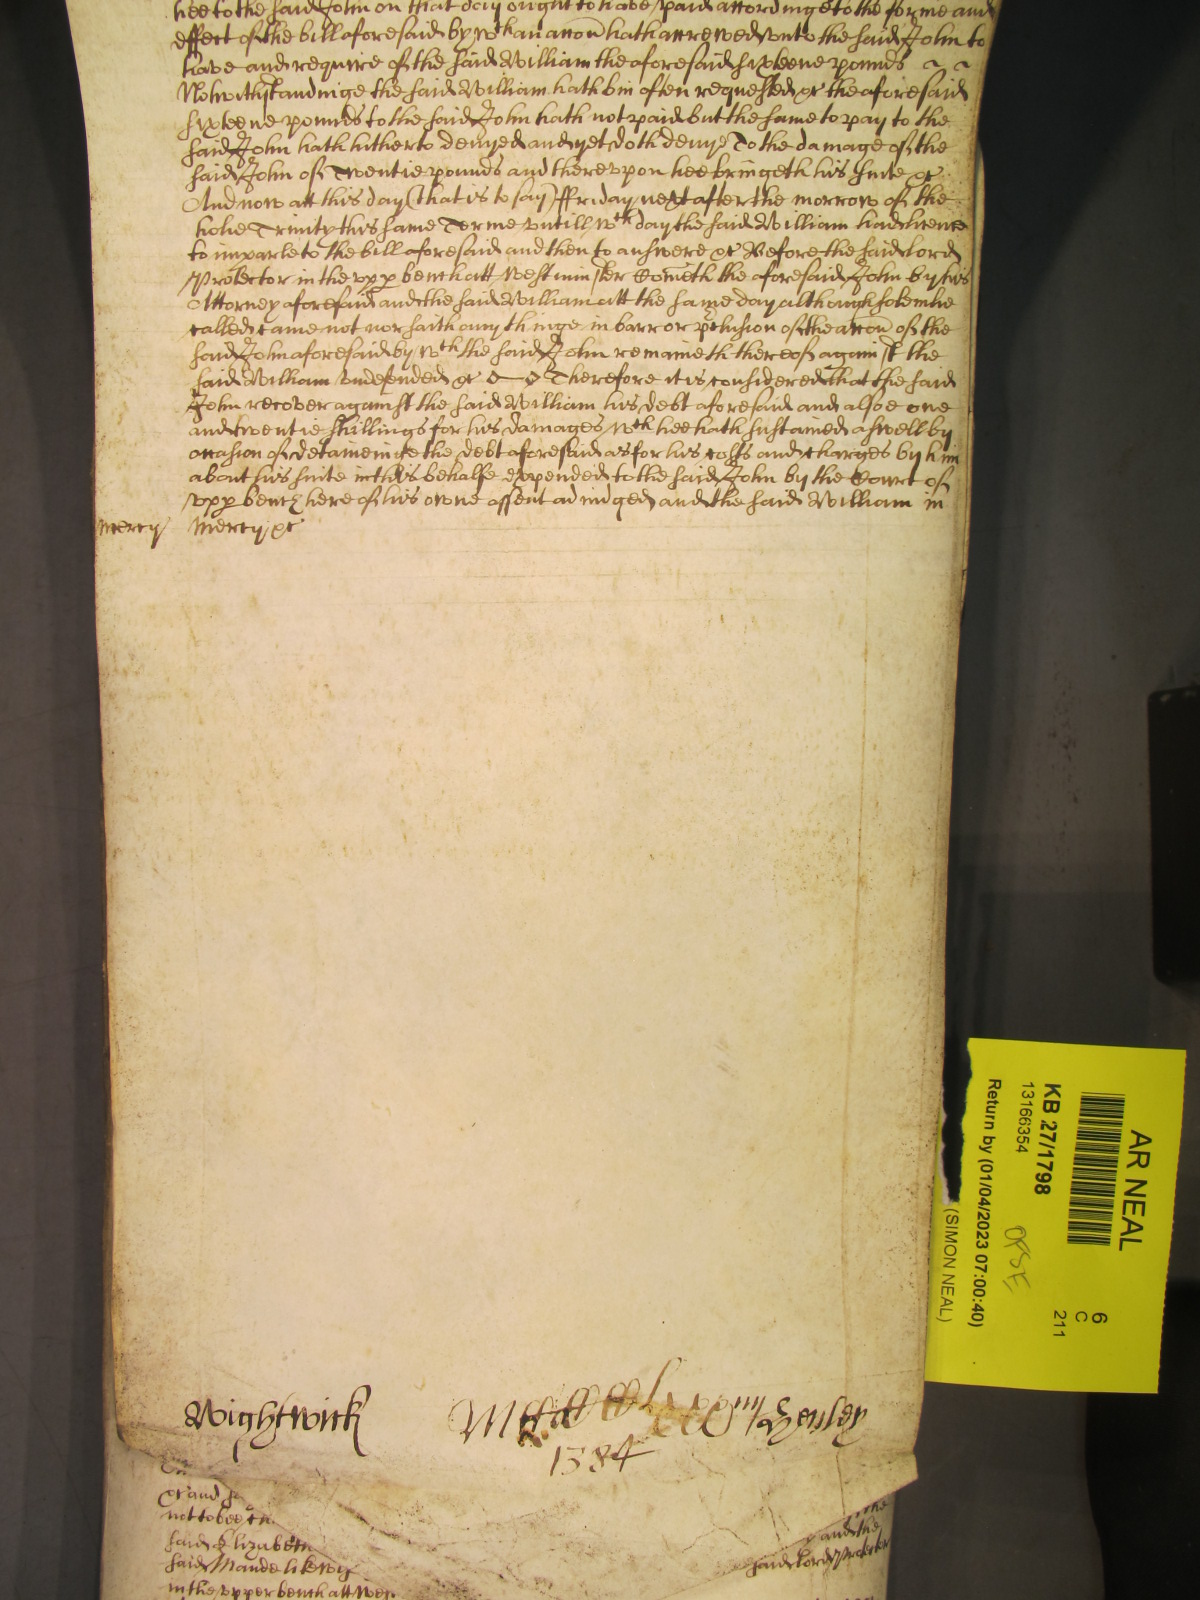 hee to the said John on that day ought to have paid accordinge to the forme and
effect of the bill aforesaid by wch an accon hath accrewed unto the said John to
have and require of the said William the aforesaid sixteene pounds
Notwithstandinge the said William hath bin often requested &c the aforesaid
sixteene pounds to the said John hath not paid but the same to pay to the
said John hath hitherto denyed and yet doth denye To the damage of the
said John of Twentie pounds and thereupon hee bringeth his suite &c
And now att this day (that is to say) ffriday next after the morrow of the
holie Trinity this same Terme untill wch day the said William had licence
to imparle to the bill aforesaid and then to answere &c Before the said Lord
Protector in the upp bench att Westminster Cometh the aforesaid John by his
Attorney aforesaid and the said William att the same day although solemlie
called came not nor saith any thinge in barr or pclusion of the accon of the
said John aforesaid by wch the said John remaineth thereof against the
said William undefended &c Therefore it is considered that the said
John recover against the said William his debt aforesaid and alsoe one
and twentie shillings for his damages wch hee hath sustained aswell by
occasion of detaineinge the debt aforesaid as for his costs and charges by him
about his suite in this behalfe expended to the said John by the Court of
upp bench here of his owne assent adiudged and the said William in
mercy mercy &c
Wightwick Henley
1384
&c and
not to bee
said Elizabeth
said Maude likewis
in the upper bench att Wes
the
and the
said Lord Protector
AR NEAL
KB 27/1798
13166354
Return by (01/04/2023 07:00:40)
(SIMON NEAL)
6
C
211